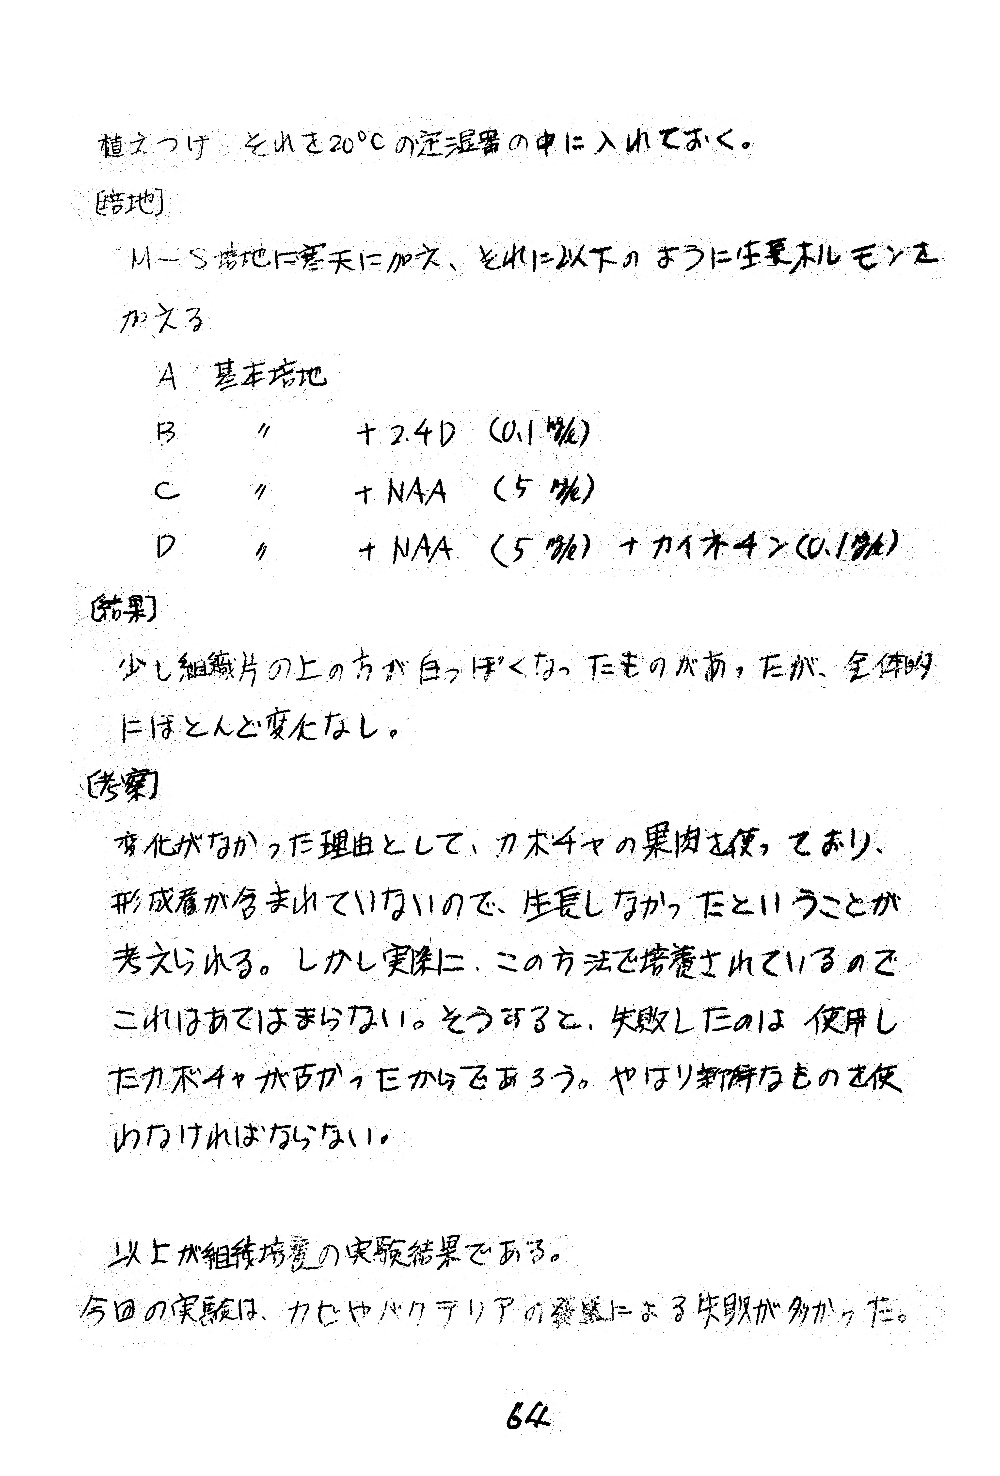 植えつけ それを20℃の定温器の中に入れておく。
[培地]
M－S培地に寒天に加え、それに以下のように生長ホルモンを
加える
A 基本培地
B 〃 ＋2.4D (0.1mg/l)
C 〃 ＋NAA (5mg/l)
D 〃 ＋NAA (5mg/l) ＋カイネチン(0.1mg/l)
[結果]
少し組織片の上の方が白っぽくなったものがあったが、全体的
にほとんど変化なし。
[考察]
変化がなかった理由として、カボチャの果肉を使っており、
形成層が含まれていないので、生長しなかったということが
考えられる。しかし実際に、この方法で培養されているので
これはあてはまらない。そうすると、失敗したのは使用し
たカボチャが古かったからであろう。やはり新鮮なものを使
わなければならない。
以上が組織培養の実験結果である。
今回の実験は、カビやバクテリアの による失敗が多かった。
64